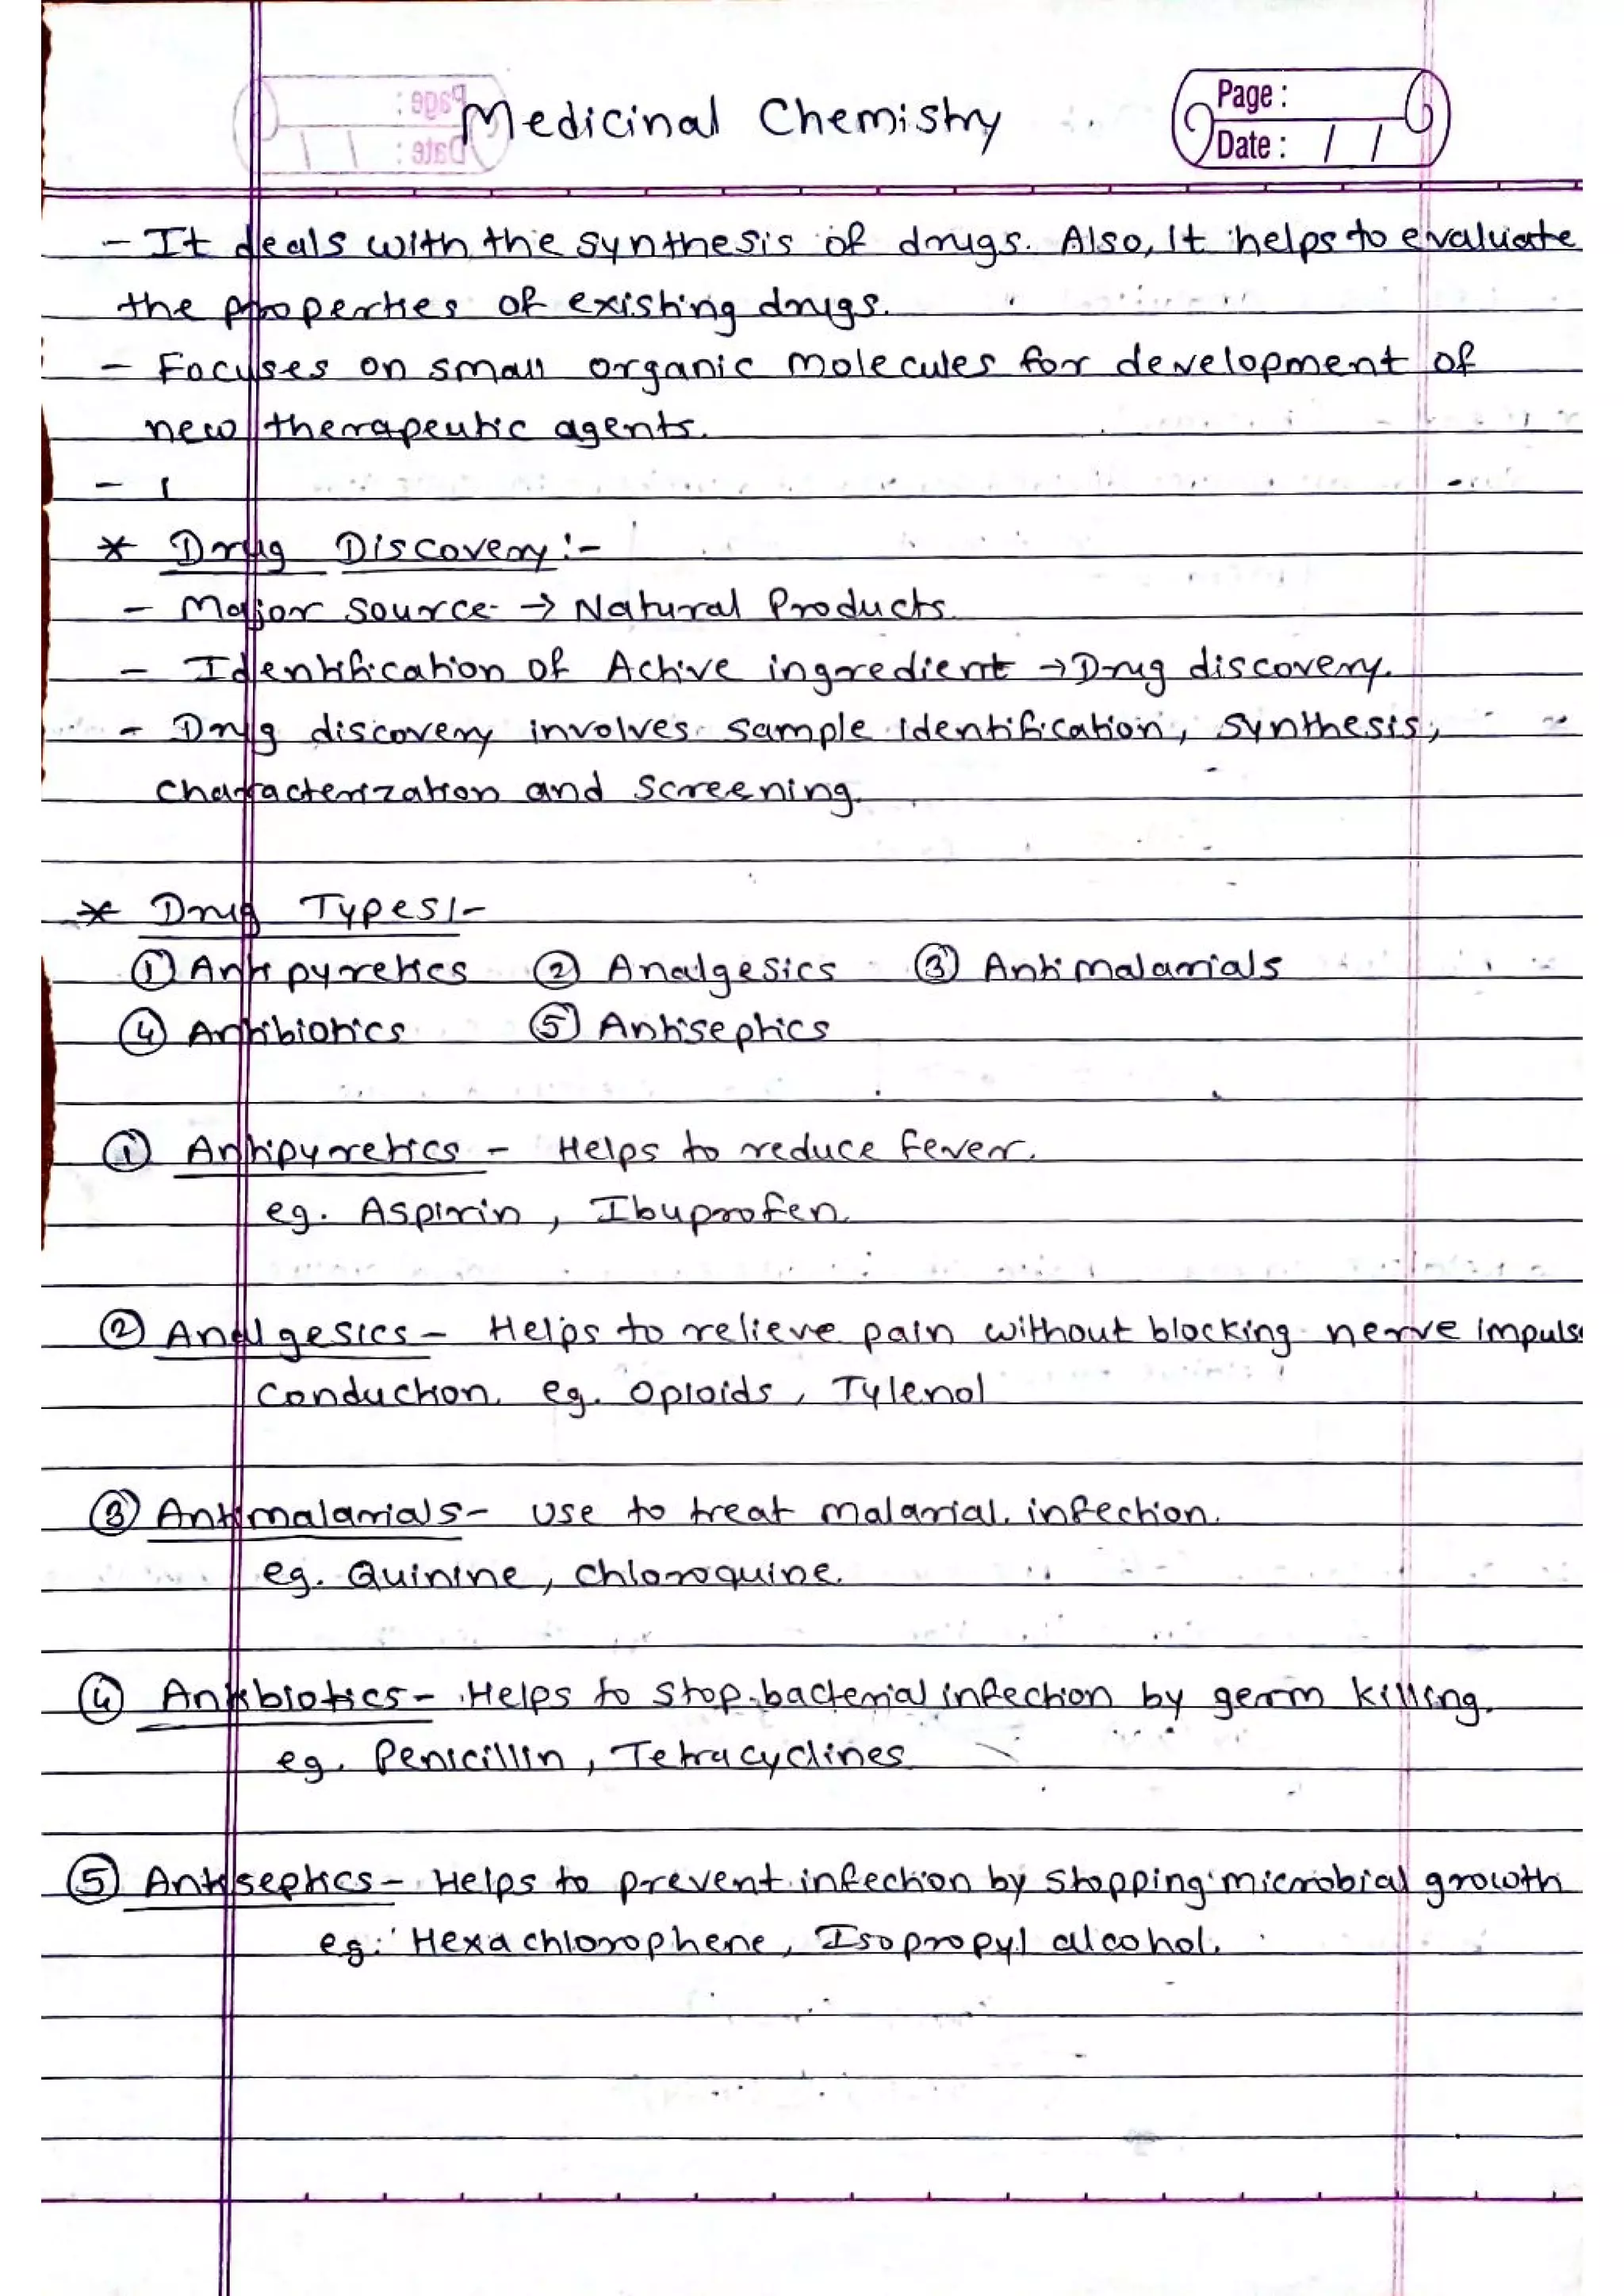 Medicinal Chemistry
Page :
Date : / /
- It deals with the synthesis of drugs. Also, It helps to evaluate
the properties of existing drugs.
- Focuses on small organic molecules for development of
new therapeutic agents.
-
* Drug Discovery :-
- Major source → Natural Products.
- Identification of Active ingredient → Drug discovery.
- Drug discovery involves sample identification, synthesis,
characterization and screening.
* Drug Types :-
① Antipyretics ② Analgesics ③ Antimalarials
④ Antibiotics ⑤ Antiseptics
① Antipyretics - Helps to reduce fever.
eg. Aspirin, Ibuprofen.
② Analgesics - Helps to relieve pain without blocking nerve impuls
conduction. eg. Opioids, Tylenol
③ Antimalarials - use to treat malarial infection.
eg. Quinine, chloroquine.
④ Antibiotics - Helps to stop bacterial infection by germ killing.
eg. Penicillin, Tetracyclines
⑤ Antiseptics - Helps to prevent infection by stopping microbial growth
eg. Hexachlorophene, Isopropyl alcohol.